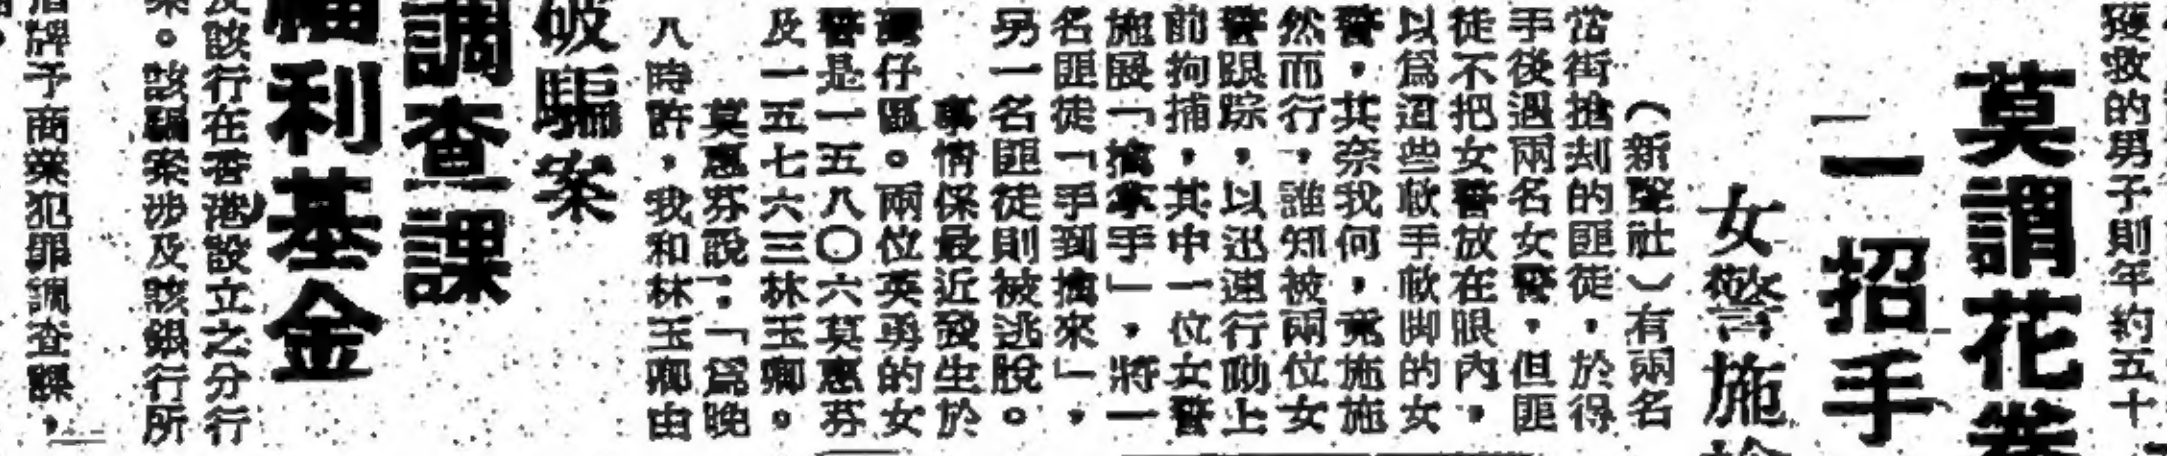 獲救的男子則年約五十
莫謂花拳
一招手
女警施
（新聲社）有兩名
當街搶刦的匪徒，於得
手後遇兩名女警，但匪
徒不把女警放在眼內，
以爲這些軟手軟脚的女
警，其奈我何，竟施施
然而行，誰知被兩位女
警跟踪，以迅速行動上
前拘捕，其中一位女警
施展「擒拿手」，將一
名匪徒「手到擒來」，
另一名匪徒則被逃脫。
事情係最近發生於
灣仔區。兩位英勇的女
警是一五八〇六莫惠芬
及一五七六三林玉卿。
莫惠芬說：「爲晚
八時許，我和林玉卿由
破騙案
調查課
福利基金
及該行在香港設立之分行
案。該騙案涉及該銀行所
牌子商業犯罪調查課，